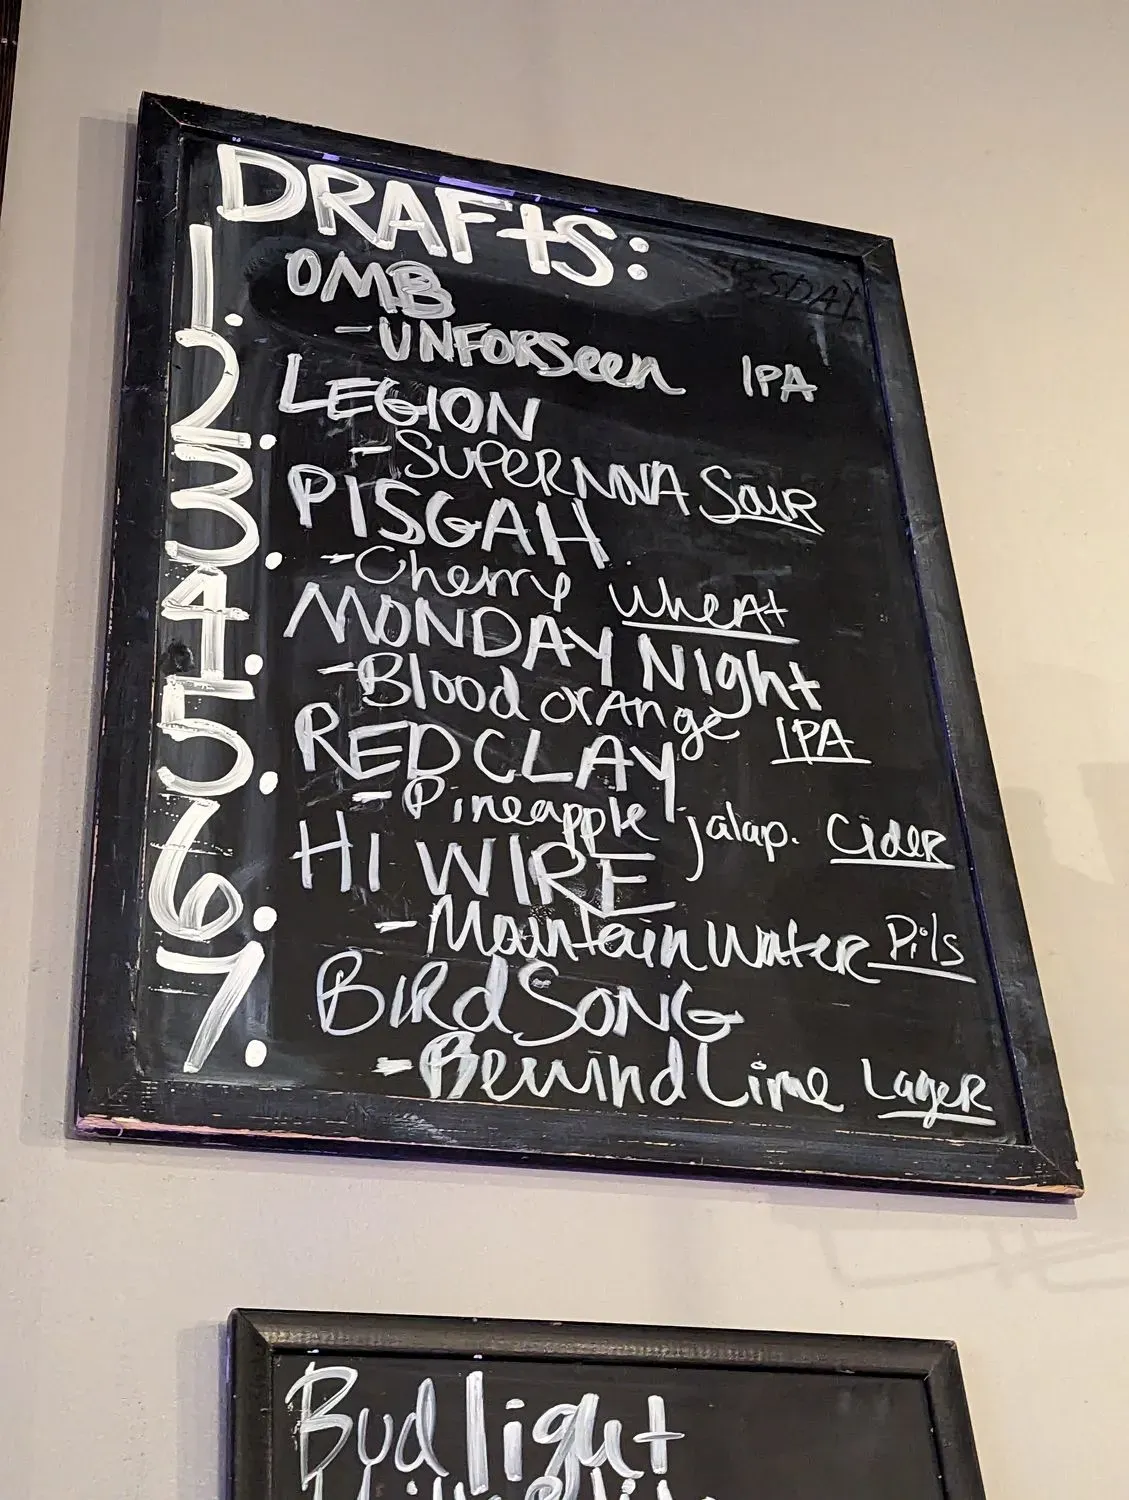 DRAFtS:
1. OMB
-UNFORSeen IPA
2. LEGION
-SUPERNOVA SOUR
3. PISGAH
-Cherry WheAt
4. MONDAY Night
-Blood orAnge IPA
5. RED CLAY
-Pineapple jalap. CideR
6. HI WIRE
-Mountain WateR Pils
7. BIRdSONG
-Rewind Lime LageR
Bud light